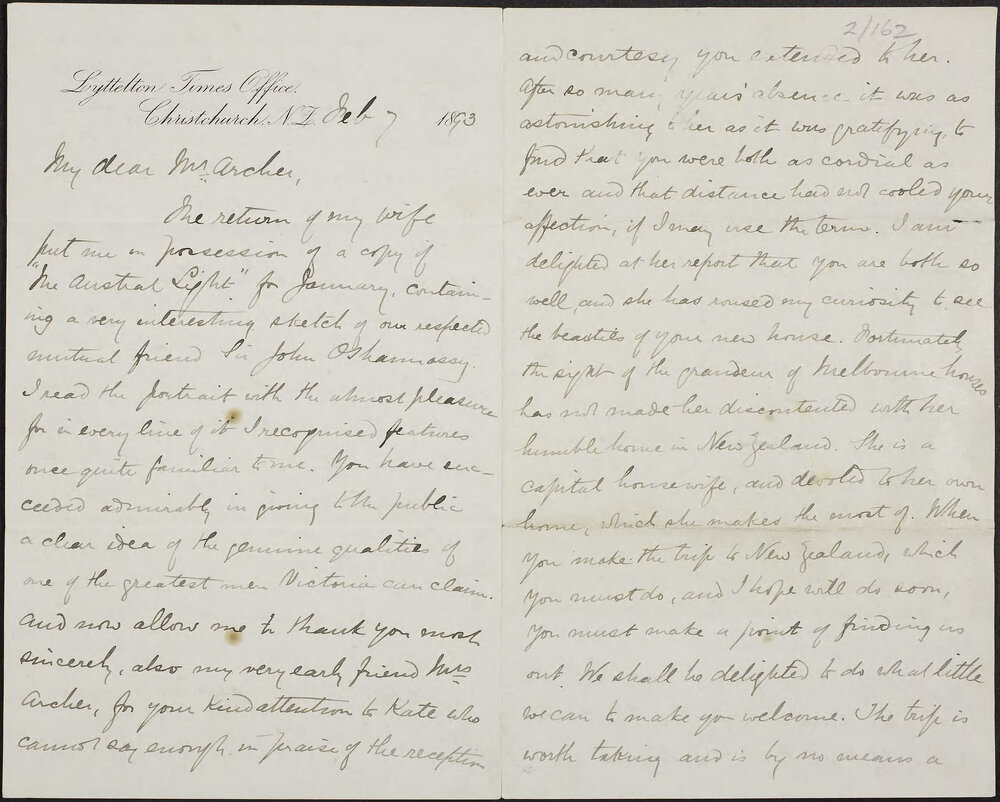 Lyttelton Times Office,
Christchurch, N.Z. Feb 7 1893
My dear Mr. Archer,
The return of my wife
put me in possession of a copy of
"The Austral Light" for January, contain-
ing a very interesting sketch of our respected
mutual friend Sir John OShannassy.
I read the portrait with the utmost pleasure
for in every line of it I recognised features
once quite familiar to me. You have suc-
ceeded admirably in giving to the public
a clear idea of the genuine qualities of
one of the greatest men Victoria can claim.
And now allow me to thank you most
sincerely, also my very early friend Mrs
Archer, for your kind attention to Kate who
cannot say enough in praise of the reception
2/162
and courtesy you extended to her.
After so many years' absence it was as
astonishing to her as it was gratifying, to
find that you were both as cordial as
ever and that distance had not cooled your
affection, if I may use the term. I am
delighted at her report that you are both so
well, and she has roused my curiosity to see
the beauties of your new house. Fortunately
the sight of the grandeur of Melbourne houses
has not made her discontented with her
humble home in New Zealand. She is a
capital housewife, and devoted to her own
home, which she makes the most of. When
you make the trip to New Zealand, which
you must do, and I hope will do soon,
you must make a point of finding us
out. We shall be delighted to do what little
we can to make you welcome. The trip is
worth taking and is by no means a